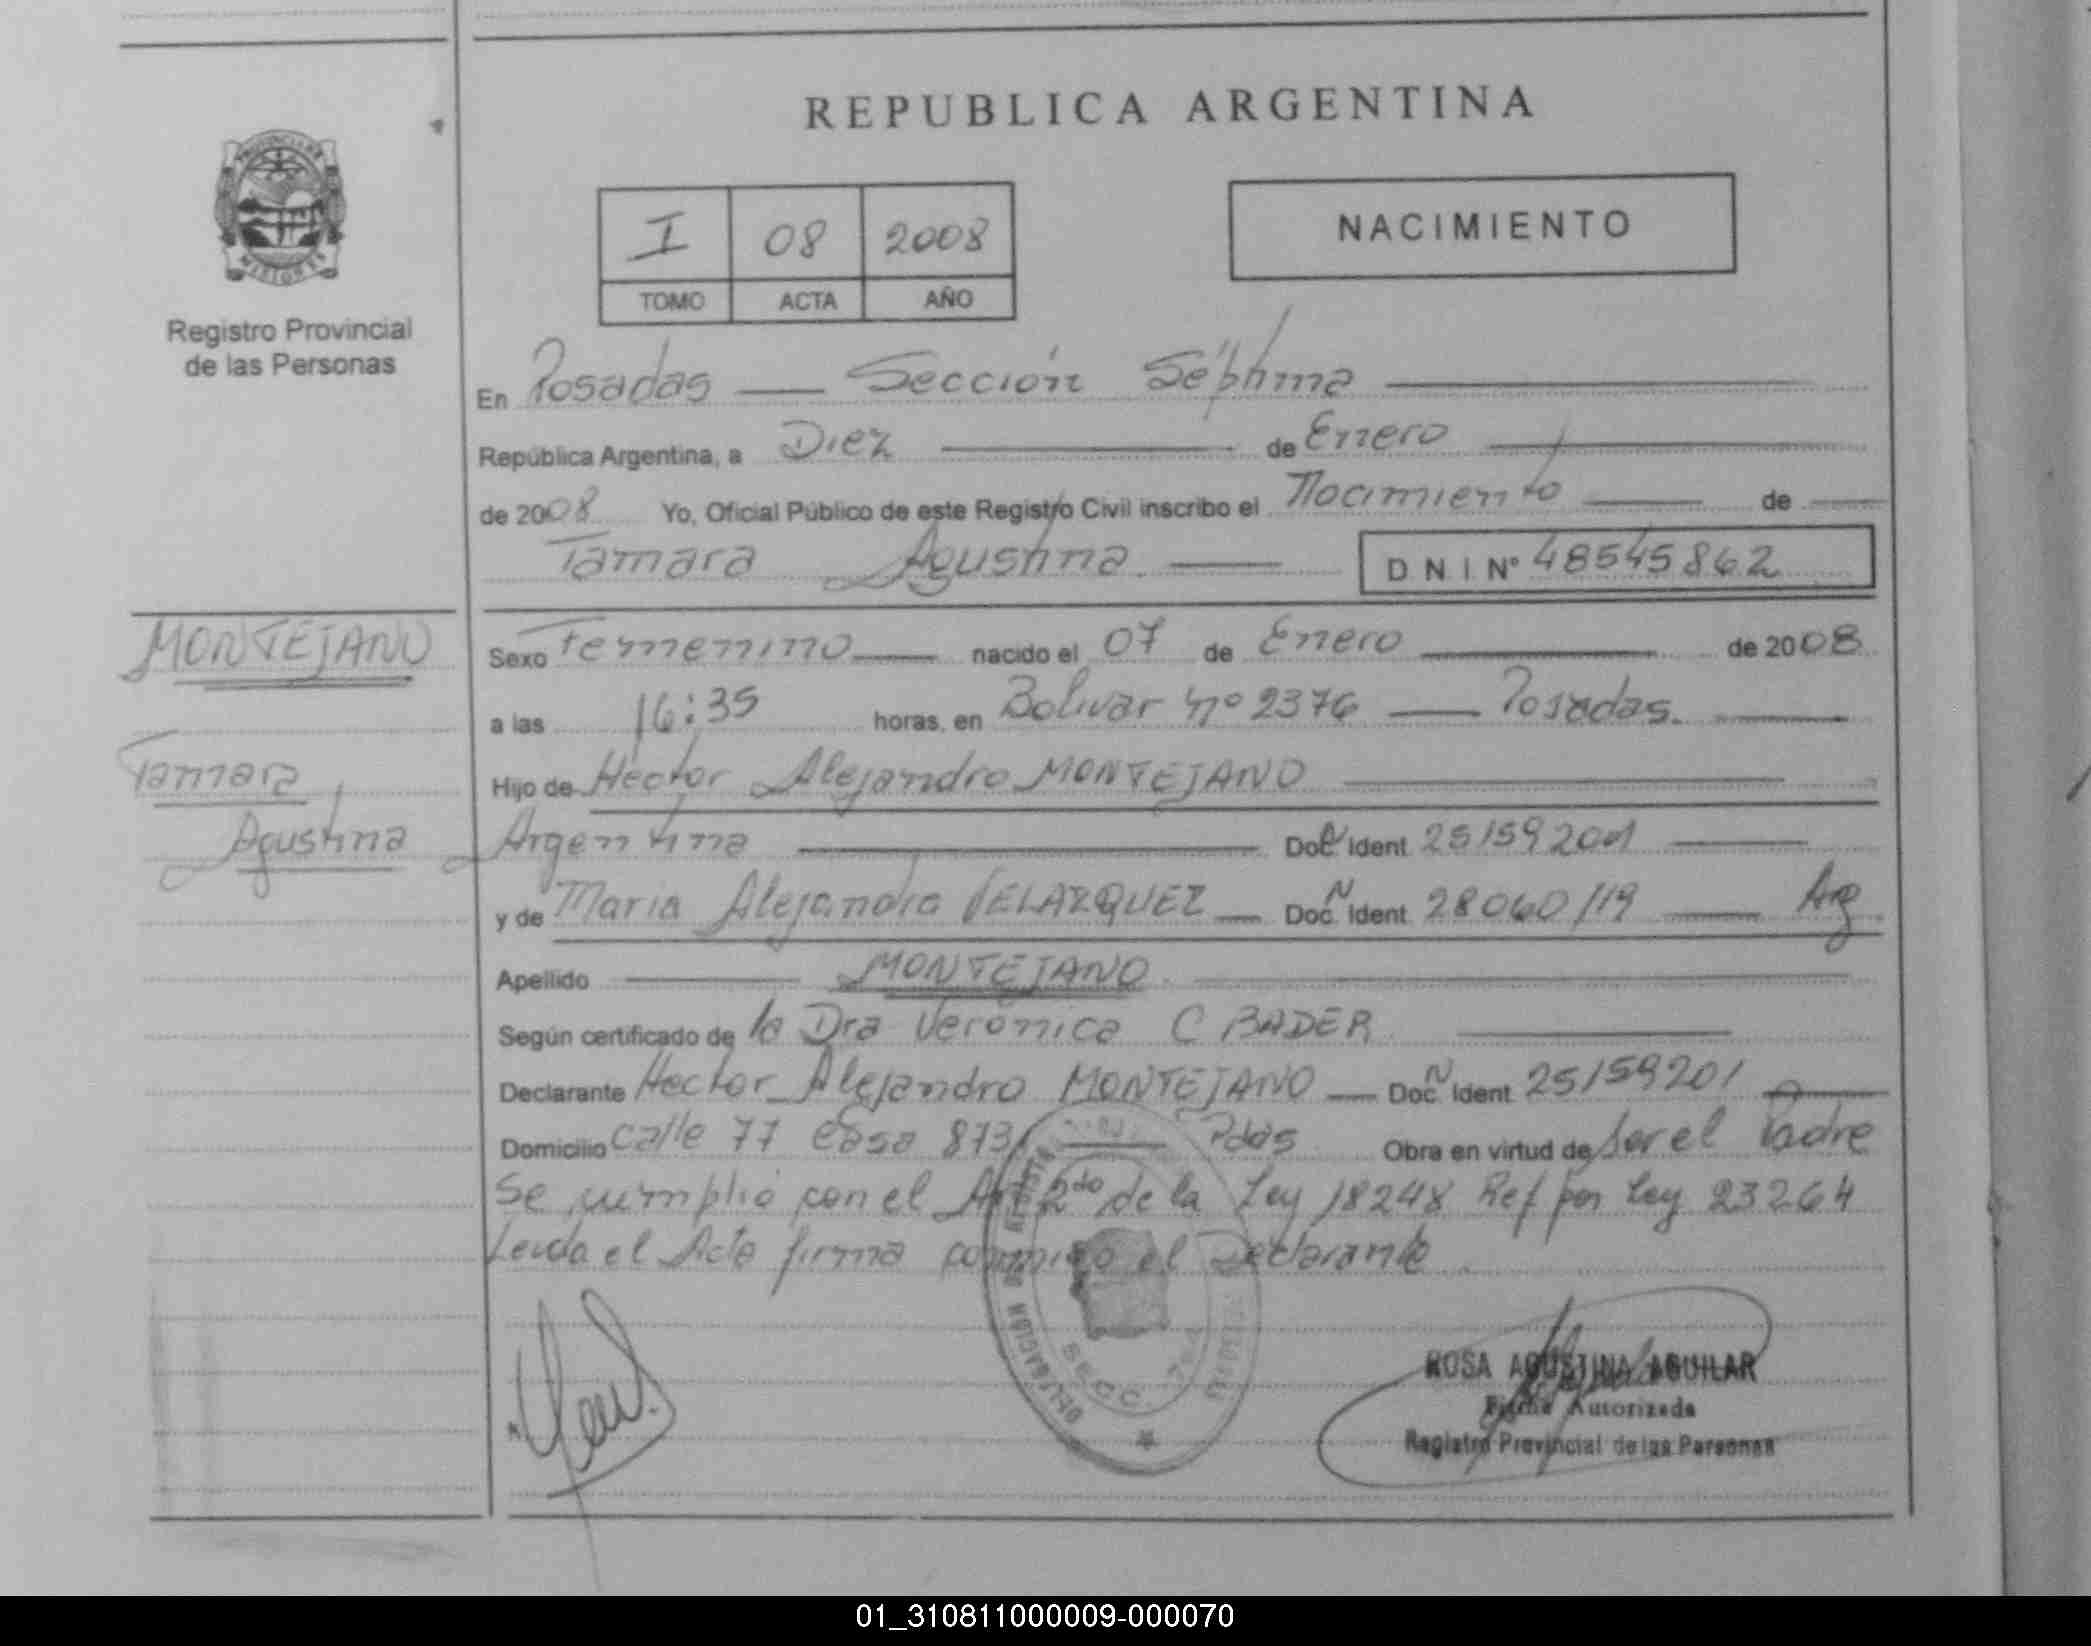 REPUBLICA ARGENTINA
PROVINCIA DE
MISIONES
Registro Provincial
de las Personas
I 08 2008
TOMO ACTA AÑO
NACIMIENTO
En Posadas — Sección Séptima
República Argentina, a Diez de Enero
de 2008 Yo, Oficial Público de este Registro Civil inscribo el Nacimiento de
Tamara Agustina DNI Nº 48545862
MONTEJANO
Tamara
Agustina
Sexo Femenino nacido el 07 de Enero de 2008
a las 16:35 horas, en Bolivar nº 2376 — Posadas.
Hijo de Hector Alejandro MONTEJANO
Argentina Doc Ident 25159201
y de Maria Alejandra VELAZQUEZ — Doc Nº Ident 28060119 — Arg
Apellido MONTEJANO
Según certificado de la Dra Verónica C BADER
Declarante Hector Alejandro MONTEJANO — Doc Nº Ident 25159201
Domicilio Calle 77 Casa 873 — Pdas Obra en virtud de ser el Padre
Se cumplió con el Art 2do de la Ley 18248 Ref por Ley 23264
Leida el Acta firma conmigo el Declarante
SECC. 7
ROSA AGUSTINA AGUILAR
Firma Autorizada
Registro Provincial de las Personas
01_310811000009-000070